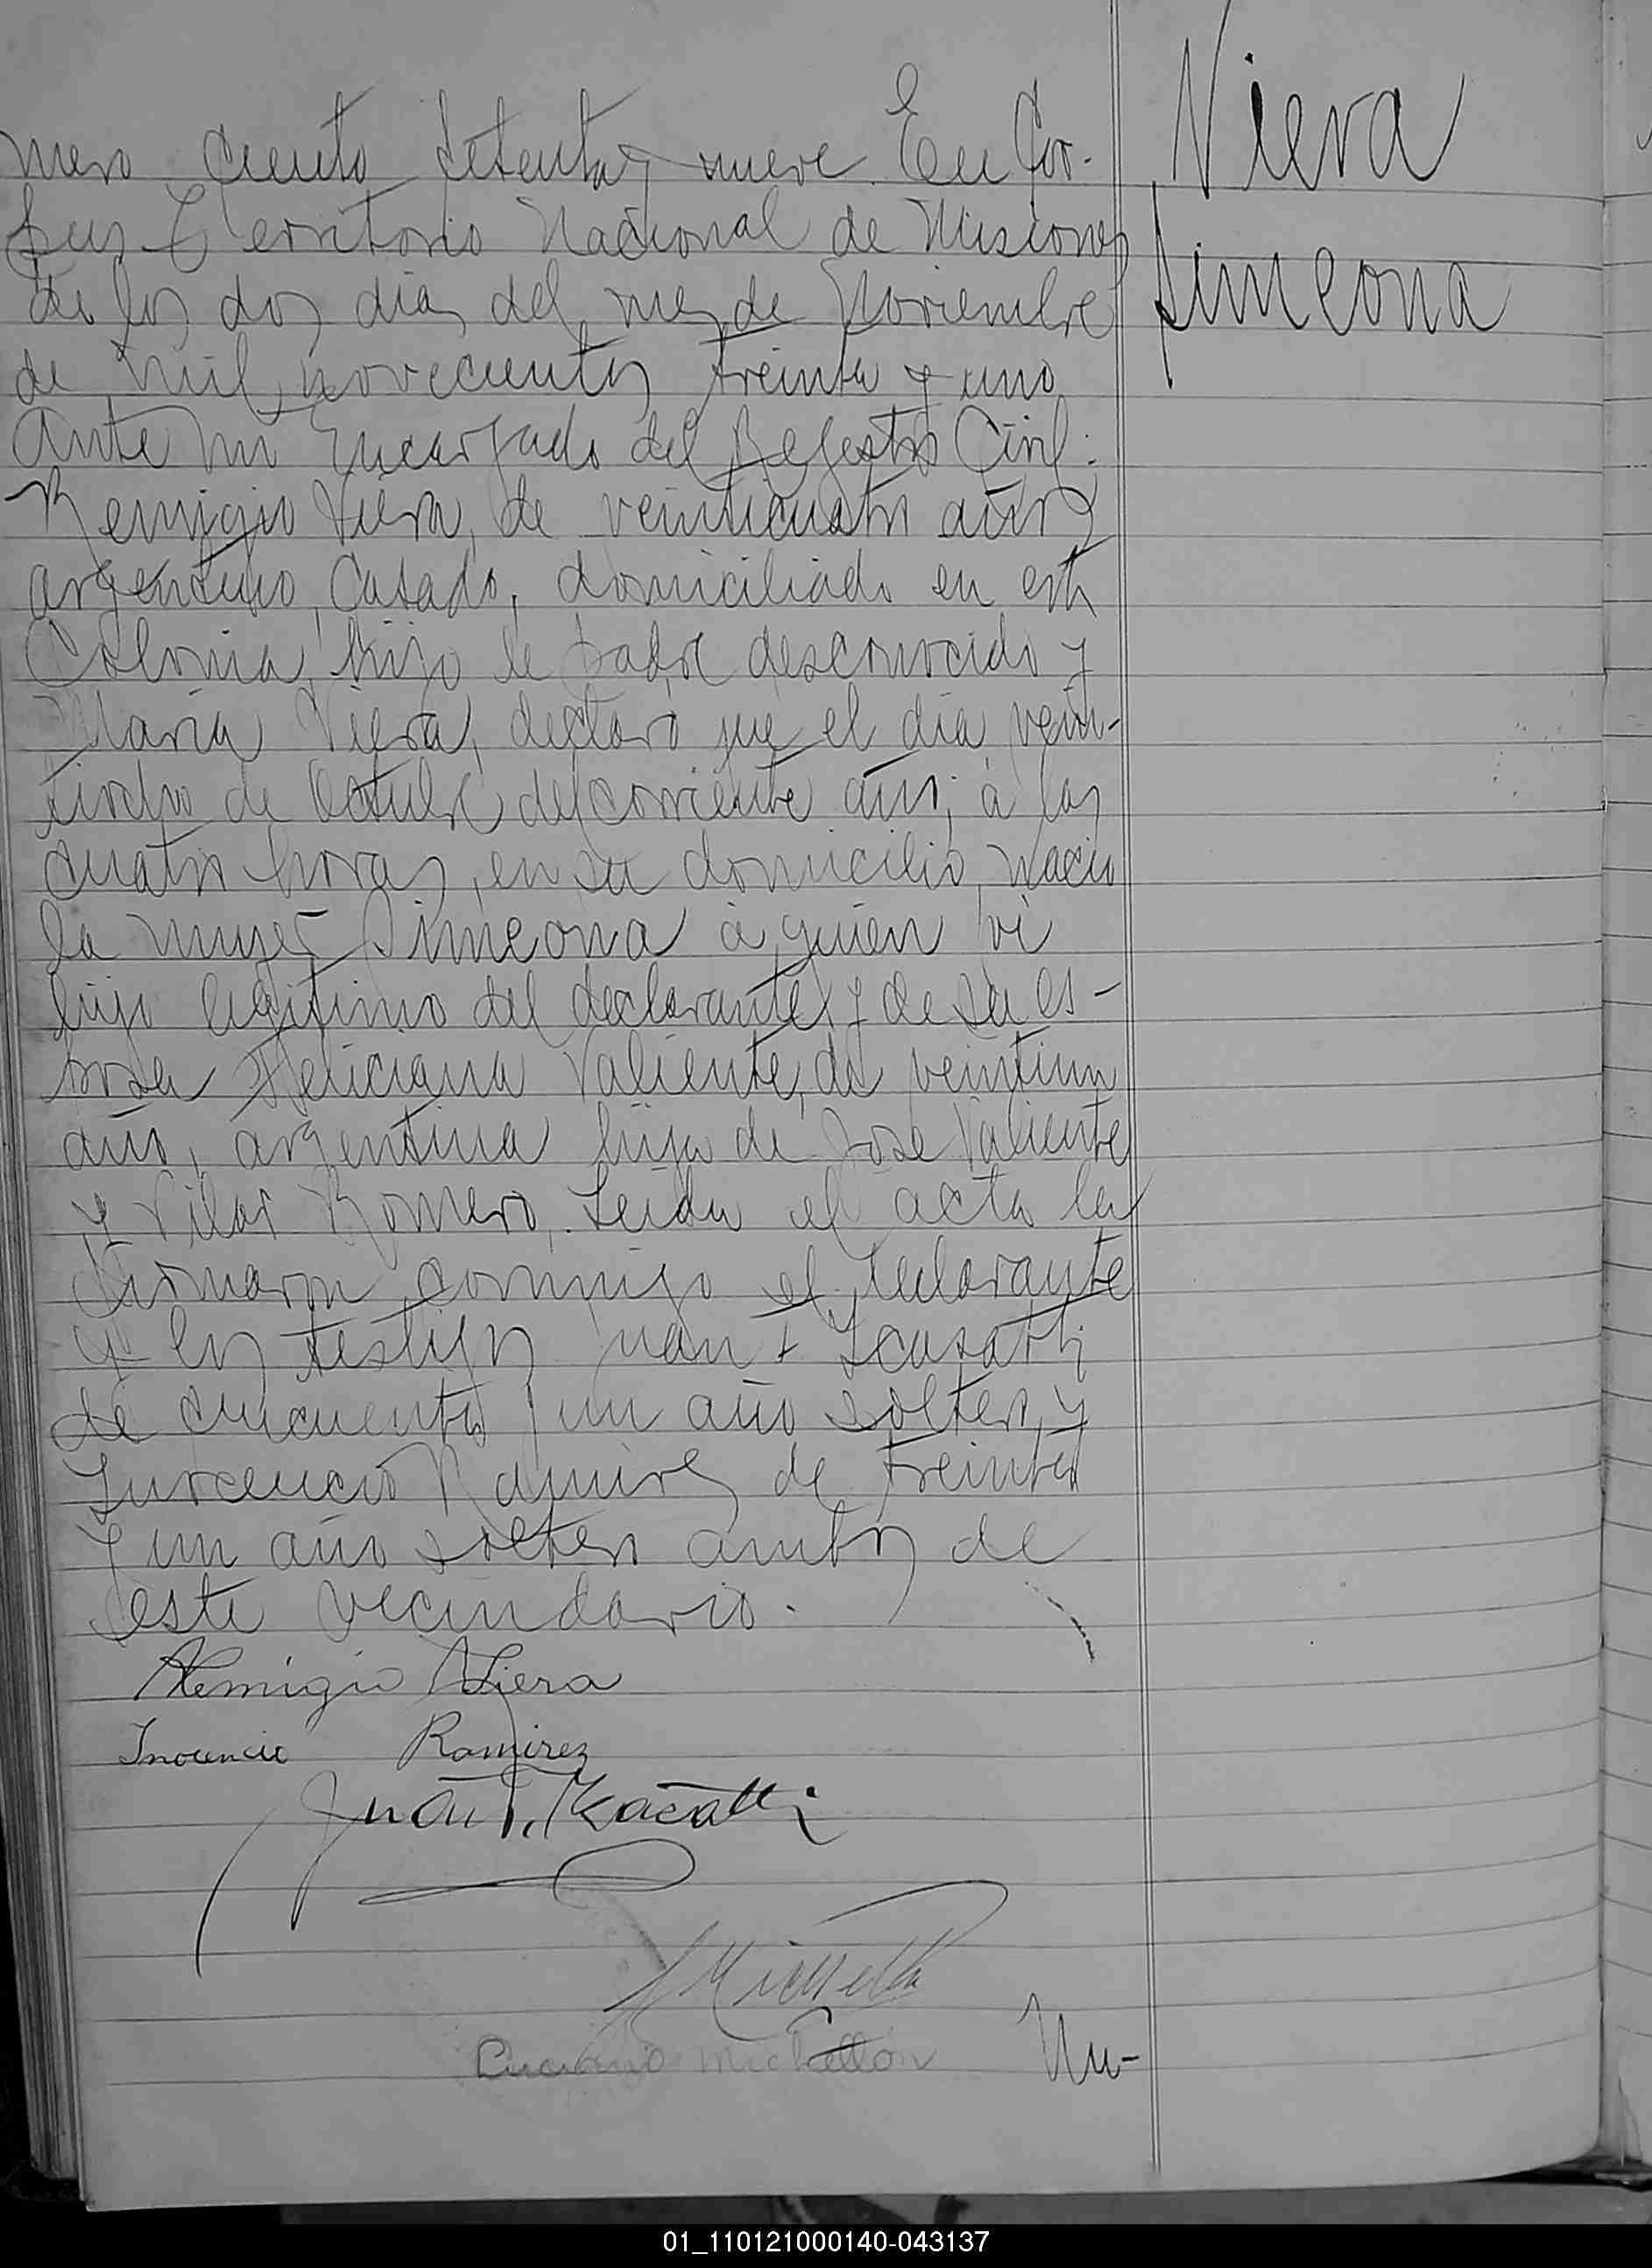 mero ciento setenta y nueve. En Cor-
pus Territorio Nacional de Misiones
a los dos dias del mes de Noviembre
de mil novecientos treinta y uno
ante mi Encargado del Registro Civil:
Remigio Viera, de veinticuatro años
argentino, casado, domiciliado en esta
Colonia, hijo de padre desconocido y
Maria Viera, declaró que el dia vein-
tiocho de Octubre del corriente año, á las
cuatro horas, en su domicilio, nació
la mujer Simeona á quien vi
hijo legitimo del declarante y de su es-
posa Feliciana Valiente, de veintiun
año, argentina hija de Jose Valiente
y Pilar Romero. Leida el acta la
firmaron conmigo el declarante
y los testigos Juan T Icasatti
de cincuenta y un año soltero y
Inocencio Ramirez de treinta
y un año soltero ambos de
este vecindario.
Remigio Viera
Inocencio Ramirez
Juan T. Icasatti
Michelton
Nu-
Viera
Simeona
01_110121000140-043137